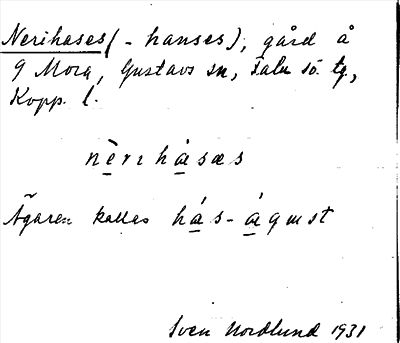 Nerihases (- hanses), gård å
9 Mora, Gustavs sn, Falu sö. tg,
Kopp. l.
nè̱rı hà̱sæs
Ägaren kallas há̱s-á̱gust
Sven Nordlund 1931